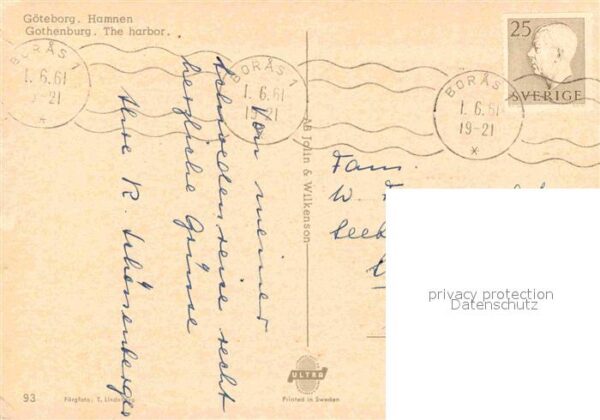 Göteborg. Hamnen
Gothenburg. The harbor.
BORÅS 1
1.6.61
19-21
*
BORÅS 1
1.6.61
19-21
BORÅS 1
1.6.61
19-21
*
25
SVERIGE
Von meiner
Schwedenreise recht
herzliche Grüsse
Ihre R. Schönenberger
AB Jolin & Wilkenson
Fam.
W.
privacy protection
Datenschutz
ULTRA
Printed in Sweden
93
Färgfoto: T. Lindé